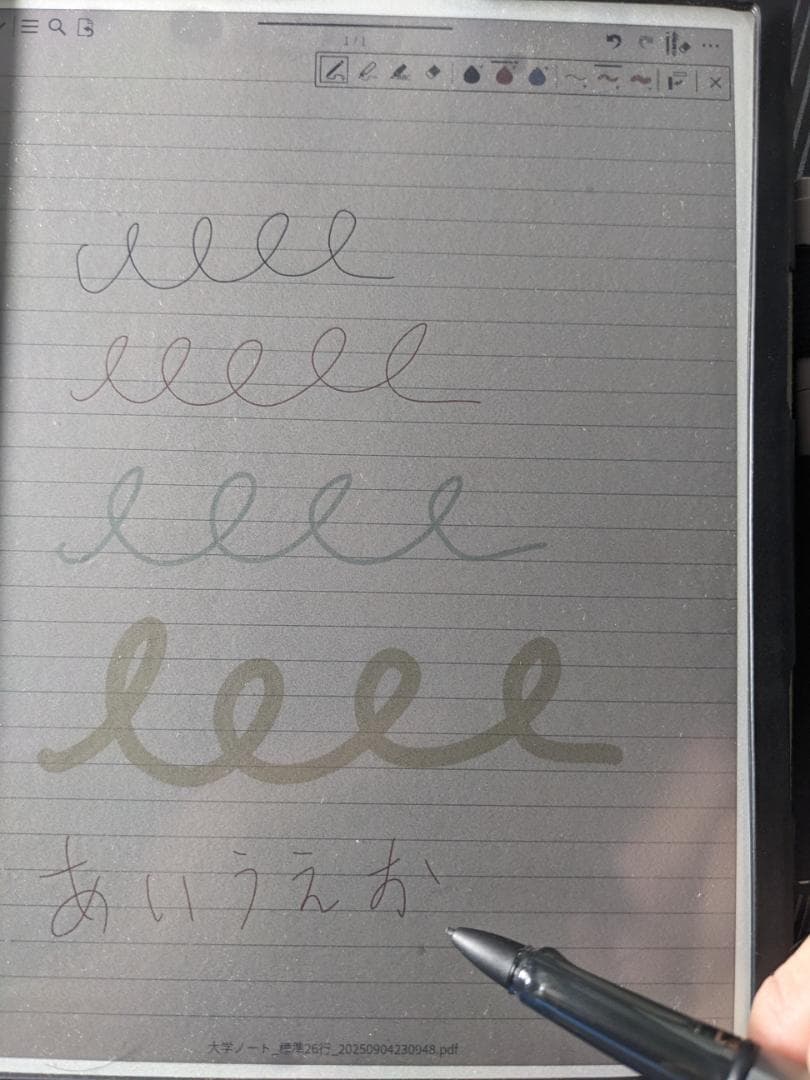 1/1
あいうえお
大学ノート_標準26行_20250904230948.pdf